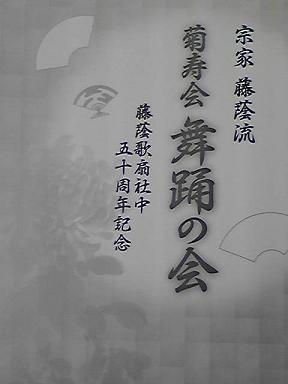 宗家 藤蔭流
菊寿会 舞踊の会
藤蔭歌扇社中
五十周年記念